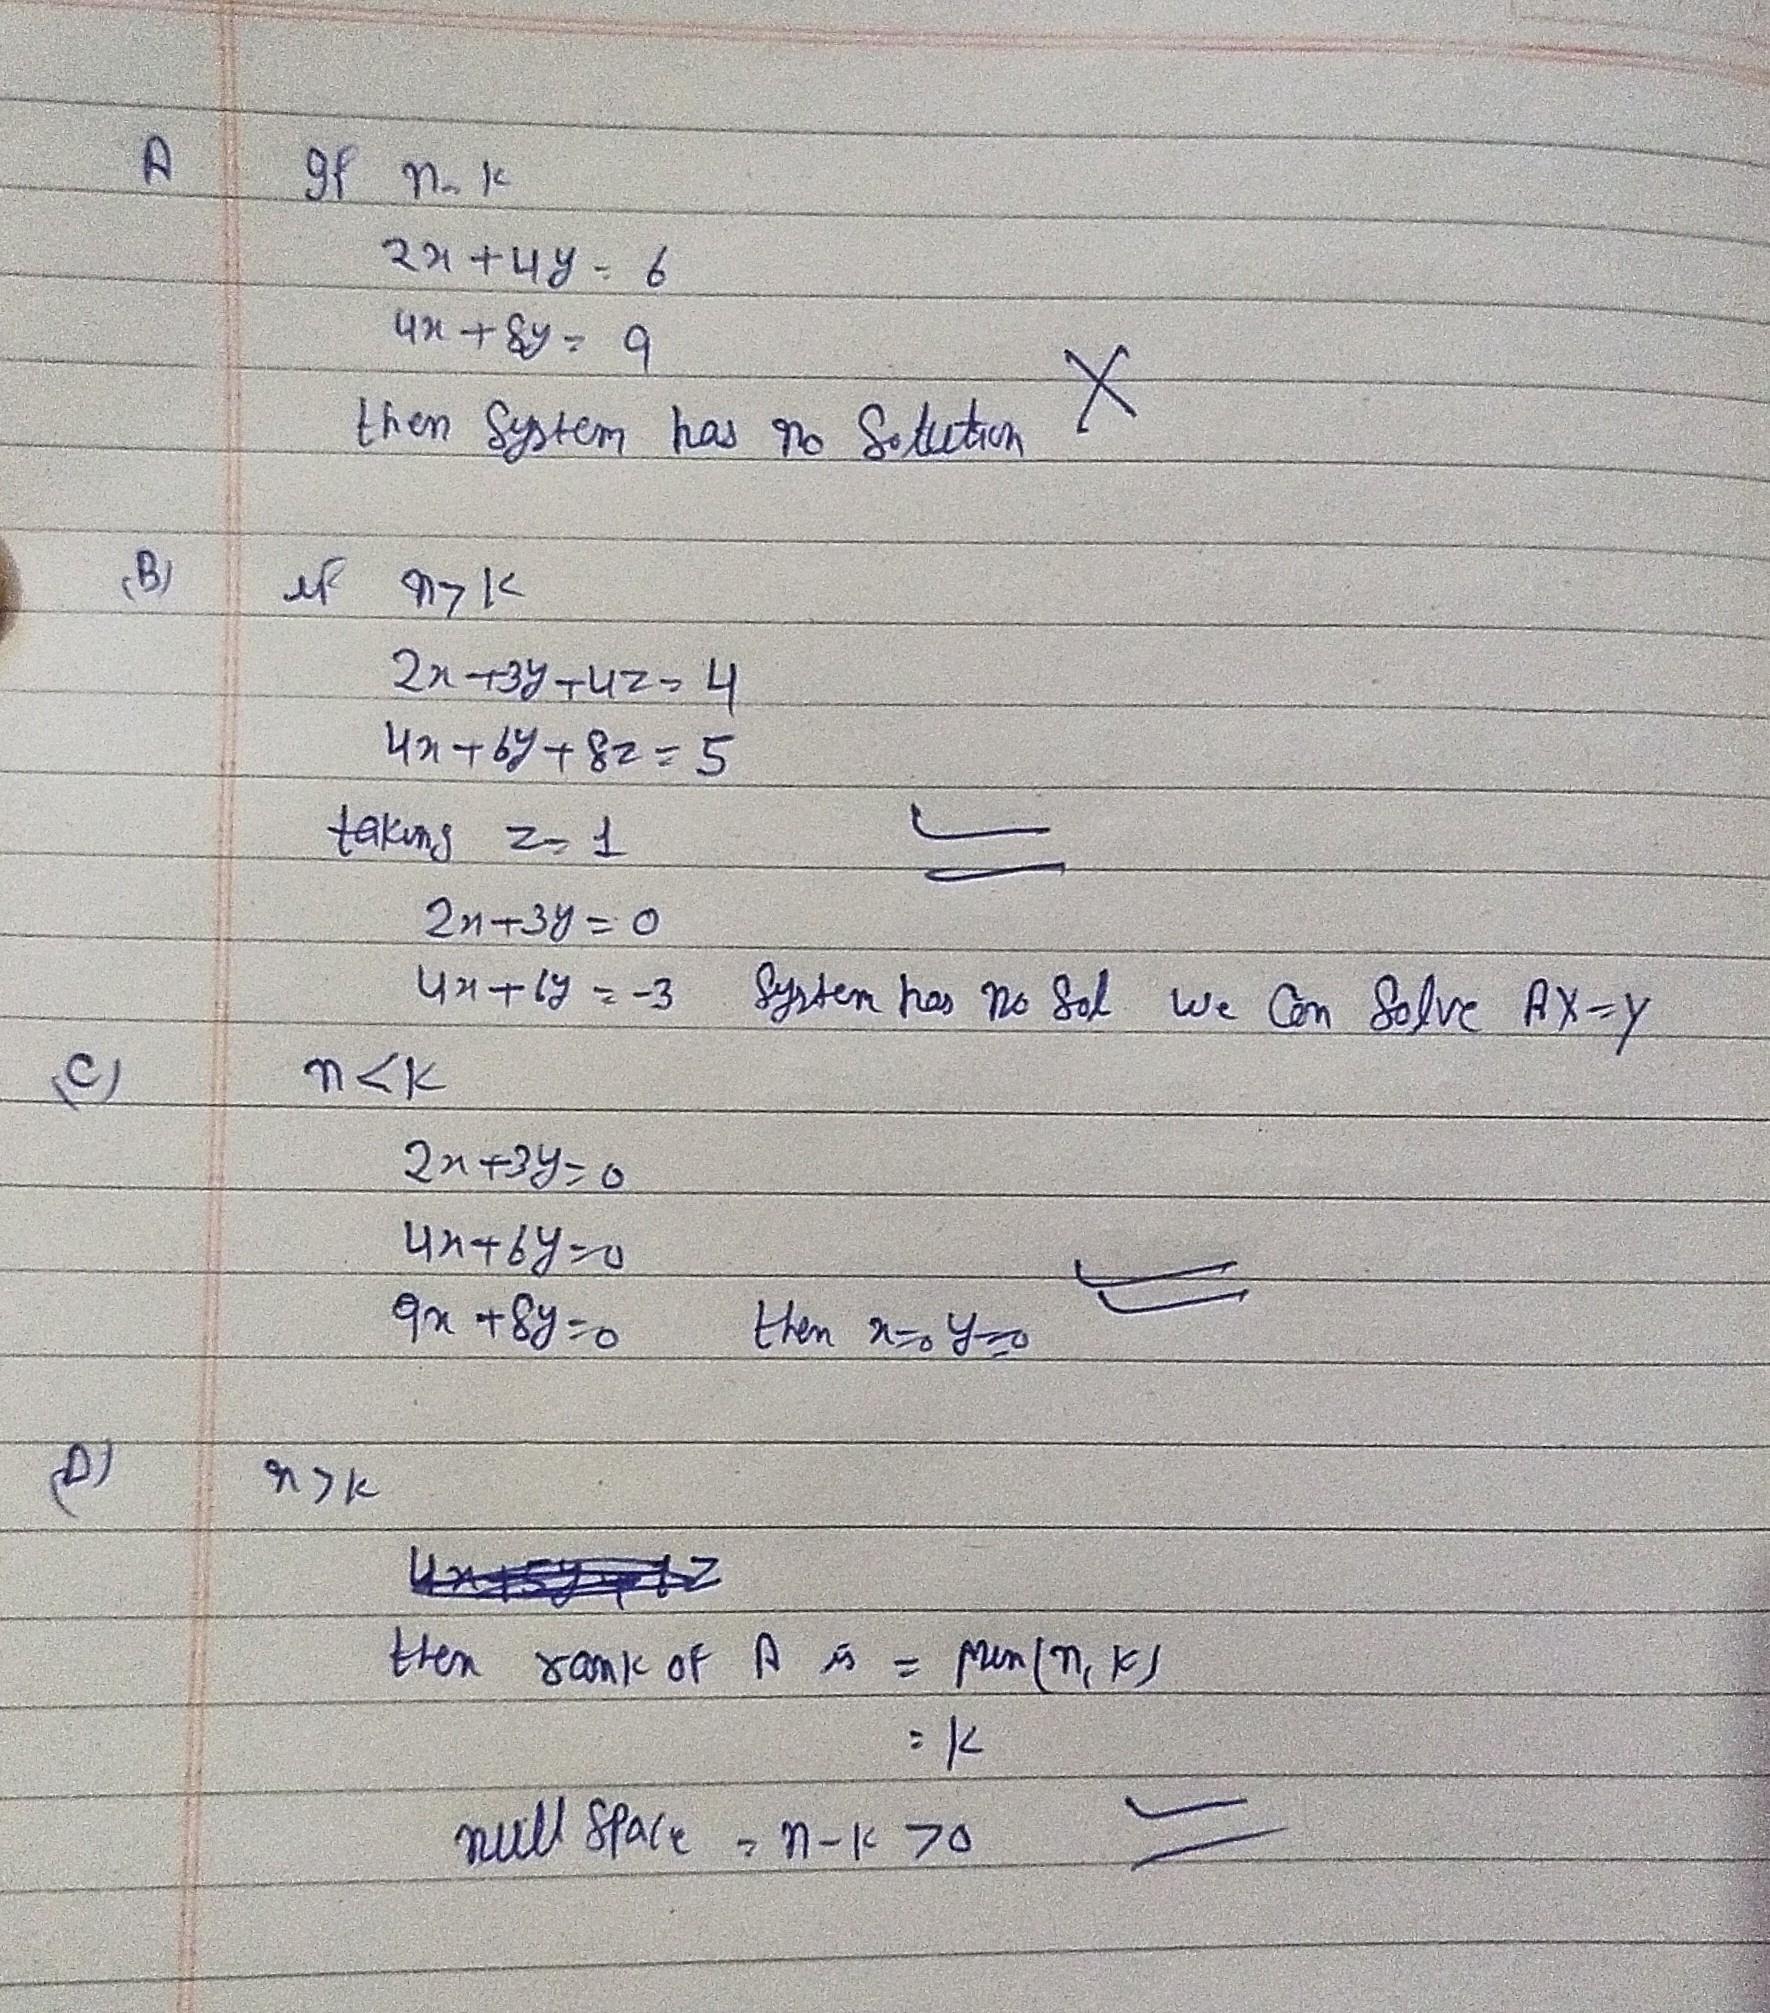 A If n = k
2x + 4y = 6
4x + 8y = 9
then System has no Solution X
(B) if n > k
2x + 3y + 4z = 4
4x + 6y + 8z = 5
taking z = 1
2x + 3y = 0
4x + 6y = -3 System has no Sol we Can Solve AX = Y
(C) n < k
2x + 3y = 0
4x + 6y = 0
9x + 8y = 0 then x = 0 y = 0
(D) n > k
then rank of A is = Min(n, k)
= k
null Space = n - k > 0